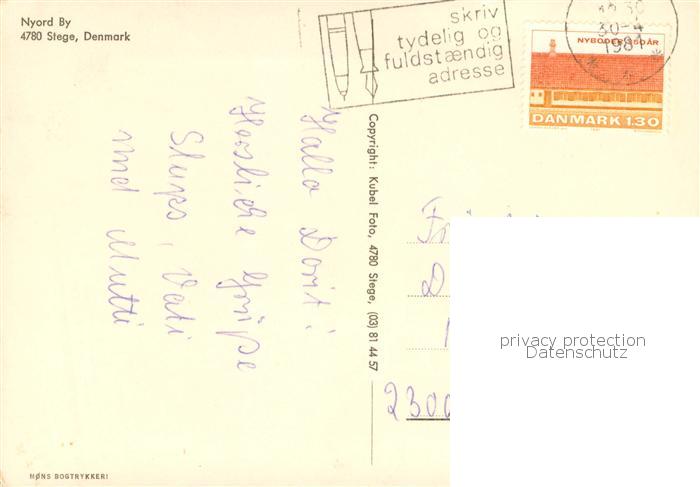 Nyord By
4780 Stege, Denmark
skriv
tydelig og
fuldstændig
adresse
30-4
1981
NYBODER 350 ÅR
DANMARK 1.30
Hallo Dorit!
Herzliche Grüße
Stups, Vati
und Mutti
Copyright: Kubel Foto, 4780 Stege, (03) 81 44 57
D
2300
privacy protection
Datenschutz
MØNS BOGTRYKKERI